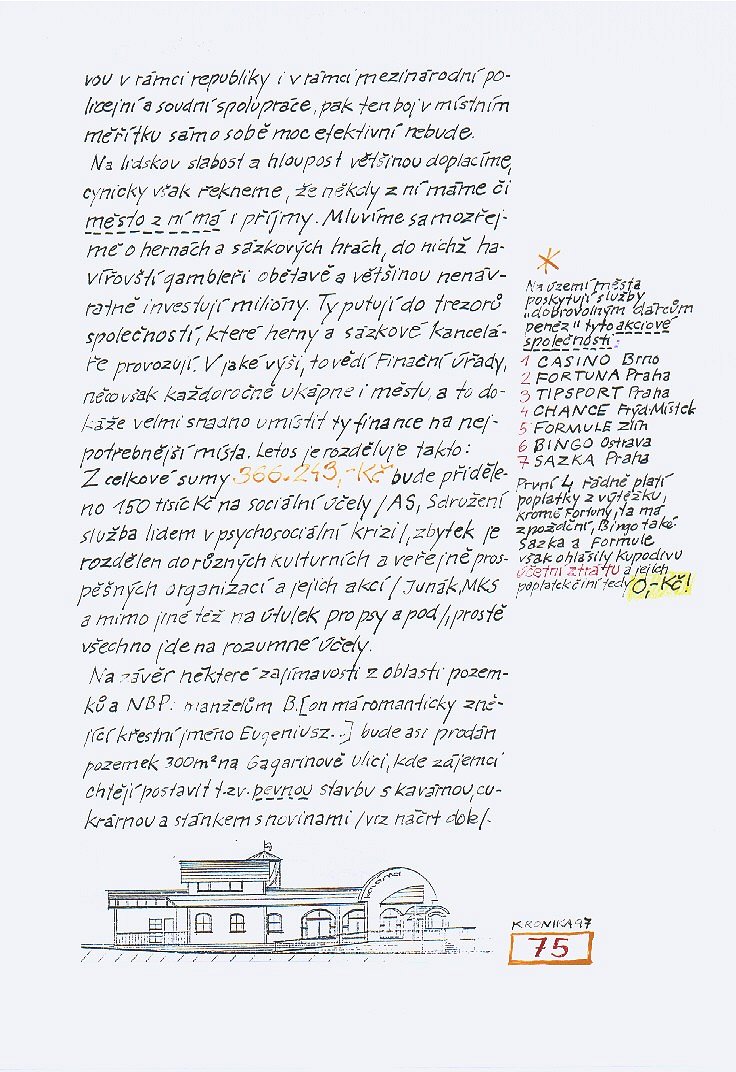 vou v rámci republiky i v rámci mezinárodní po-
licejní a soudní spolupráce, pak ten boj v místním
měřítku sámo sobě moc efektivní nebude.
Na lidskou slabost a hloupost většinou doplácíme,
cynicky však řekneme, že někdy z ní máme či
město z ní má i příjmy. Mluvíme samozřej-
mě o hernách a sázkových hrách, do nichž ha-
vířovští gambleři obětavě a většinou nenáv-
ratně investují milióny. Ty putují do trezorů
společností, které herny a sázkové kancelá-
ře provozují. V jaké výši, to vědí Finanční úřady,
něco však každoročně ukápne i městu, a to do-
káže velmi snadno umístit ty finance na nej-
potřebnější místa. Letos je rozděluje takto:
Z celkové sumy 366.243,-Kč bude přiděle-
no 150 tisíc Kč na sociální účely /AS, Sdružení
služba lidem v psychosociální krizi/, zbytek je
rozdělen do různých kulturních a veřejně pros-
pěšných organizací a jejich akcí /Junák, MKS
a mimo jiné též na útulek pro psy a pod/, prostě
všechno jde na rozumné účely.
Na závěr některé zajímavosti z oblasti pozem-
ků a NBP: manželům B. [on má romanticky zně-
jící křestní jméno Eugeniusz..] bude asi prodán
pozemek 300m² na Gagarinově ulici, kde zájemci
chtějí postavit t.zv. pevnou stavbu s kavárnou, cu-
krárnou a stánkem s novinami /viz náčrt dole/.
*
Na území města
poskytují služby
"dobrovolným dárcům
peněz" tyto akciové
společnosti:
1 CASINO Brno
2 FORTUNA Praha
3 TIPSPORT Praha
4 CHANCE Frýd-Místek
5 FORMULE Zlín
6 BINGO Ostrava
7 SAZKA Praha
První 4 řádně platí
poplatky z výtěžku,
kromě Fortuny, ta má
zpoždění, Bingo také.
Sazka a Formule
však ohlásily kupodivu
účetní ztrátu a jejich
poplatek činí tedy 0,-Kč!
KRONIKA 97
75